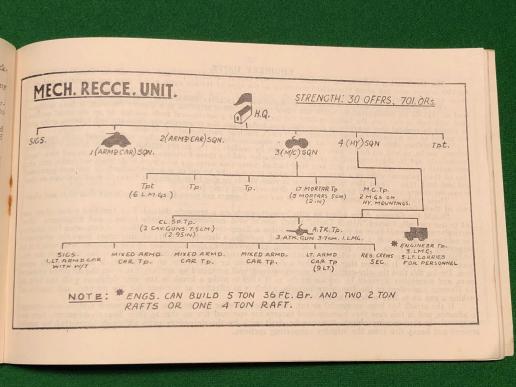 MECH. RECCE. UNIT.
STRENGTH: 30 OFFRS, 701. ORs
H.Q.
SIGS.
1 (ARMD CAR) SQN.
2 (ARMD CAR) SQN.
3 (M/C) SQN
4 (HY) SQN
Tpt.
Tpt
(6 L.M.Gs.)
Tp.
Tp.
LT MORTAR Tp
(3 MORTARS 5CM)
(2-IN)
M.G. Tp.
2 M.Gs ON
HY. MOUNTINGS.
CL. SP. Tp.
(2 CAV. GUNS 7.5CM)
(2.95IN)
A.TK. Tp.
3 ATK. GUN 3.7CM. 1 LMG.
* ENGINEER Tp.
3. L.M.G.
5 LT LORRIES
FOR PERSONNEL
SIGS.
1. LT. ARMD CAR
WITH W/T
MIXED ARMD.
CAR Tp.
MIXED ARMD.
CAR Tp.
MIXED ARMD.
CAR Tp.
LT. ARMD
CAR Tp
(9 LT.)
RES. CREWS
SEC.
NOTE: * ENGS. CAN BUILD 5 TON 36 Ft. Br. AND TWO 2 TON
RAFTS OR ONE 4 TON RAFT.